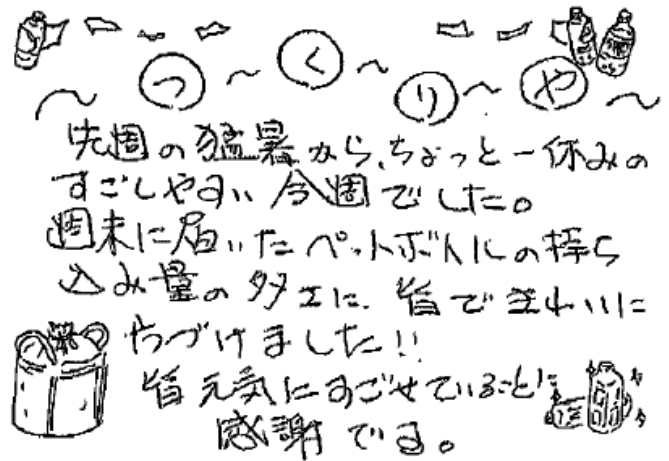 つくりや
先週の猛暑から、ちょっと一休みの
すごしやすい今週でした。
週末に届いたペットボトルの持ち
込み量の多さに、皆できれいに
かたづけました!!
皆元気にすごせていることに
感謝です。